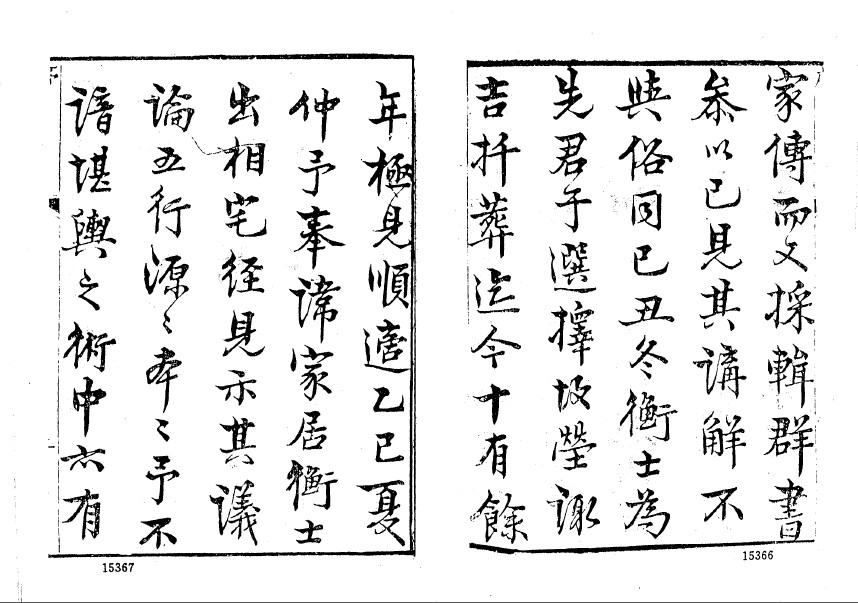 家傳而文採輯群書
叅以己見其講解不
與俗同己丑冬衡士為
先君于選擇坟塋諏
吉扦葬迄今十有餘
15366
年極見順適乙巳夏
仲予奉諱家居衡士
出相宅経見示其議
論五行源〻本〻予不
諳堪輿之術中亦有
15367